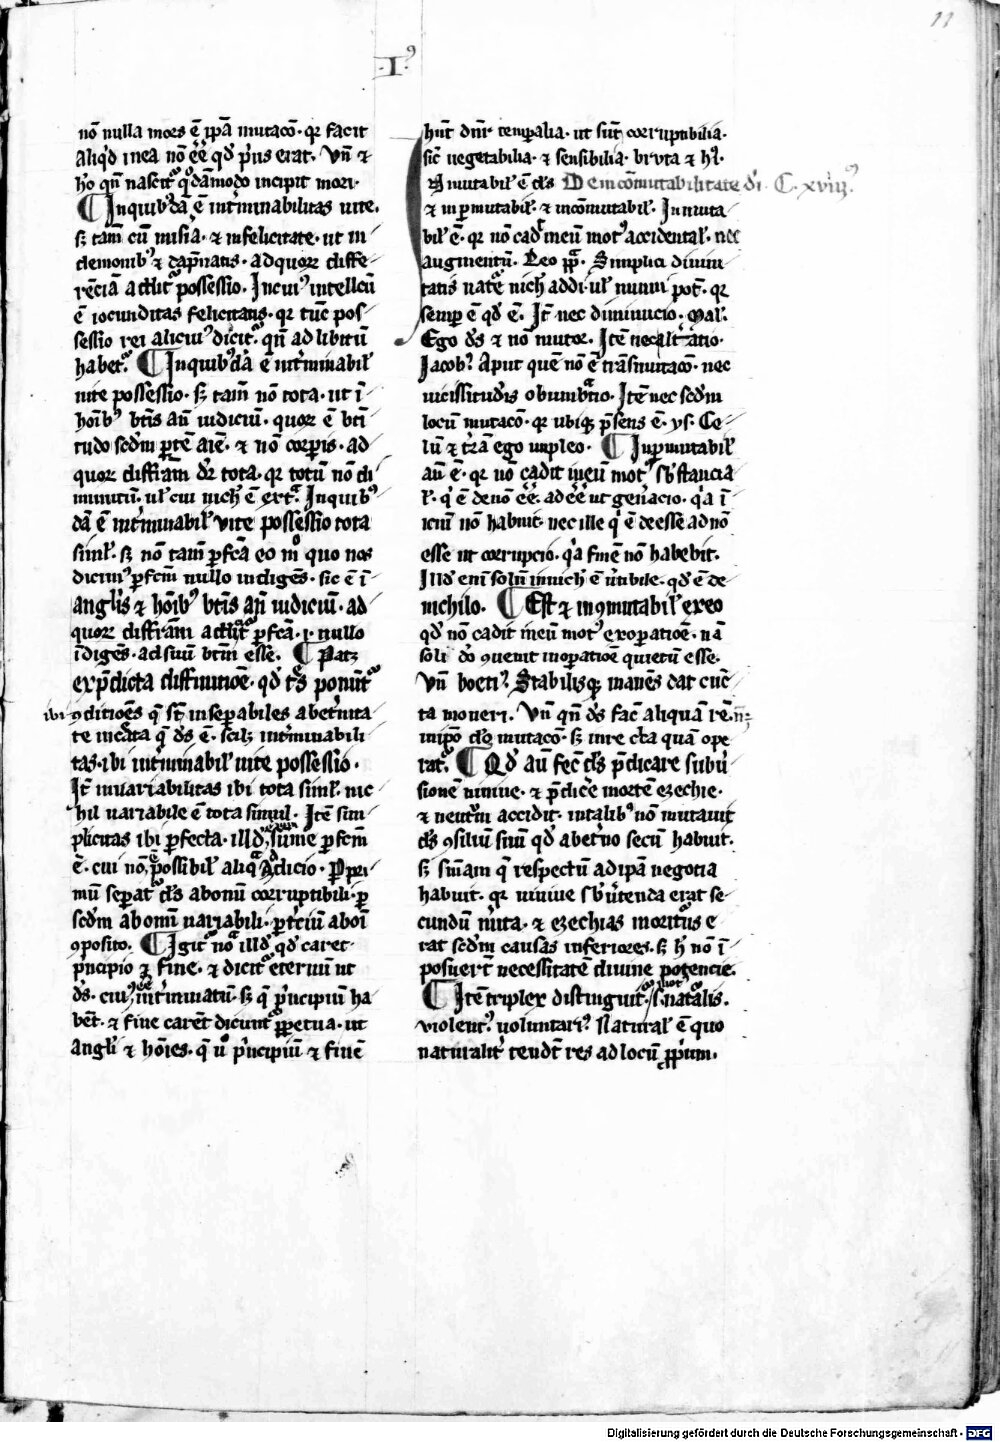 11
·I·ꝰ
nō nulla mors ē ip̄a mutacō· qr facit
aliqd̓ in ea nō ēē qd̓ pͥus erat· Vn̄ ⁊
hō qn̄ nascitᷣ qͦdāmodo incipit mori·
¶ In quibꝰdā ē int̓minabilitas uite·
sꝫ tam̄ cū mis̓ia· ⁊ infelicitate· ut in
demonibꝰ ⁊ dāpnatis· ad quoꝝ diffe-
rēciā addit̉ possessio· In cuiꝰ intellcū
ē iocunditas felicitatis· qr tūc pos-
sessio rei alicuiꝰ dicit̉· qn̄ ad libitū
habet̉· ¶ In quibꝰdā ē int̓minabil̓
uite possessio· sꝫ tam̄ nō tota· ut ī
hōibꝰ btīs an̄ iudiciū· quoꝝ ē bti
tudo scd̓m ꝑtē aīe· ⁊ nō corꝑis· ad
quoꝝ diffr̄am dr̄ tota· qr totū nō di
minutū· ul̓ cui nich̓ ē ext̄· In quibꝰ
dā ē int̓minabil̓ vite possessio tota
siml̓· sꝫ nō tam̄ ꝑfcā eo mͦ quo nos
dicimꝰ ꝑfcm̄ nullo indigēs· sic ē ī
angl̓is ⁊ hōibꝰ btīs an̄ iudiciū· ad
quoꝝ diffr̄am addit̉ ꝑfcā· i· nullo
īdigēs· ad suū btm̄ esse· ¶ Patꝫ
ex p̄dicta diffinitiōe· qd̓ tͥs ponūt̉
ibi ꝯditiōes q̄ st̄ insepabiles ab et̓nita
te inc̓ata q̄ ds̓ ē· scilꝫ int̓minabili
tas· ibi int̓minabil̓ uite possessio·
It̄ inuariabilitas ibi tota siml̓· nic
hil uariabile ē tota simul· Itē sim
plicitas ibi ꝑfecta· illd̓ sūme ꝑfcm̄
ē· cui nō possibil̓ aliqͣ addicio· P pri
mū sepat̉ ds̓ a bonū corruptibili· ꝑ
scd̓m a bonū uariabili· ꝑ t̓ciū a boī
ꝯposito· ¶ Igit̉ nͦ illd̓ qd̓ caret
pͥncipio ⁊ fine· ⁊ dicit̉ et̓ernū ut
ds̓· cuiꝰ ēē int̓minatū· sꝫ q̄ pͥncipiū ha
bēt· ⁊ fine carēt dicunt̉ ꝑpetua· ut
angl̓i ⁊ hōies· q̄ uͦ pͥncipiū ⁊ finē
hn̄t dnr̄ temꝑalia· ut sūt corruptibilia·
sic̄ uegetabilia· ⁊ sensibilia· bruta ⁊ hī·
mutabil̓ ē ds̓ De incōmutabilitate d̓i· C· xviijꝰ
⁊ inꝑmutabil̓· ⁊ incōmutabil̓· Inmuta
bil̓ ē· qr nō cad̓ in eū motꝰ accidental̓· nec
augmentū· Leo pp̄· Simplici diuini
tatis natͣe nich̓ addi· ul̓ minui pot̄· qr
semꝑ ē qd̓ ē· It̄ nec diminucio· Mal̓·
Ego ds̓ ⁊ nō mutor· Itē nec alt̓atio·
Jacobꝰ· Aput quē nō ē trāsmutacō· nec
uicissitud̓is obumbͣtio· Itē nec scd̓m
locū mutacō· qr ubiqꝫ p̄sens ē· ys· Ce-
lū ⁊ t̓rā ego impleo· ¶ Inꝑmutabil̓
aū ē· qr nō cadit in eū motꝰ sbstancia
l̓· qͥ ē de nō ēē· ad ēē ut gen̓acio· qͥa ī
iciū nō habuit· nec ille qͥ ē de esse ad nō
esse ut corrupcio· qͥa finē nō habebit·
Illd̓ enī solū in nich̓ ē u̓tibile· qd̓ ē de
nichilo· ¶ Est ⁊ inꝯmutabil̓ ex eo
qd̓ nō cadit in eū motꝰ ex oꝑatiōe· nā
soli dō ꝯuenit in oꝑatiōe quietū esse·
Vn̄ boetiꝰ· Stabilisqꝫ manēs dat cūc
ta moueri· Vn̄ qn̄ ds̓ fac̄ aliquā rē· n̄
in ip̄o ē mutacō· sꝫ in re c̓ta quā oꝑe
rat̉· ¶ Qd̓ aū fec̄ ds̓ p̄dicare subu̓
sionē niniue· ⁊ p̄dice mortē ezechie·
⁊ neut̓m accidit· in talibꝰ nō mutauit
ds̓ ꝯsiliū suū qd̓ ab et̓no secū habuit·
sꝫ sn̄iam q̄ respectū ad ip̄a negotia
habuit· qr niniue sb̓u̓tenda erat se-
cundū m̓ita· ⁊ ezechias moritͧus e
rat scd̓m causas inferiores· sꝫ h̓ nō ī
posuert̄ necessitatē diuine potencie·
¶ Itē triplex distinguit̉ motꝰ· s· natͧalis·
violentꝰ· uoluntariꝰ· Natural̓ ē quo
naturalit̓ tendt̄ res ad locū ꝓpium·
Digitalisierung gefördert durch die Deutsche Forschungsgemeinschaft - DFG